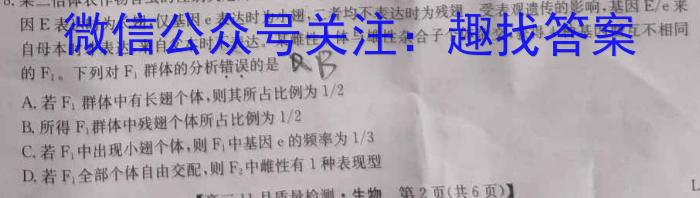 因E表 为长翅,仅基因e表达时为小翅,二者均不表达时为残翅。受表观遗传的影响,基因E/e来
微信公众号关注:趣找答案
自母本
的F₁。下列对F₁群体的分析错误的是
B
A. 若F₁群体中有长翅个体,则其所占比例为1/2
B. 所得F₁群体中残翅个体所占比例为1/2
C. 若F₁中出现小翅个体,则F₁中基因e的频率为1/3
D. 若F₁全部个体自由交配,则F₂中雌性有1种表现型
【高三11月质量检测·生物 第2页(共6页)】
L